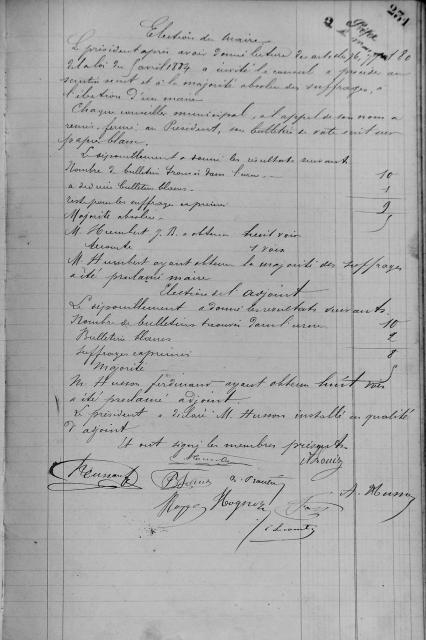 231
2
Election du maire
Le président après avoir donné lecture des articles 76, 77 et 80
de la loi du 5 avril 1884 a invité le conseil à procéder au
scrutin secret et à la majorité absolue des suffrages, à
l'élection d'un maire
Chaque conseiller municipal, à l'appel de son nom a
remis, fermé au Président, son bulletin de vote écrit sur
papier blanc.
Le dépouillement a donné les résultats suivants
Nombre de bulletins trouvés dans l'urne 10
à déduire bulletin blanc 1
reste pour les suffrages exprimés 9
Majorité absolue 5
M. Humbert J. B. a obtenu huit voix
1 voix
M. Humbert ayant obtenu la majorité des suffrages
a été proclamé maire
Election de l'adjoint
Le dépouillement a donné les résultats suivants.
Nombre de bulletins trouvés dans l'urne 10
Bulletins blancs 2
Suffrages exprimés 8
Majorité 5
M. Husson ferdinand ayant obtenu huit voix
a été proclamé adjoint
Le président a déclaré M. Husson installé en qualité
d'adjoint
Et ont signé les membres présents
A. Husson